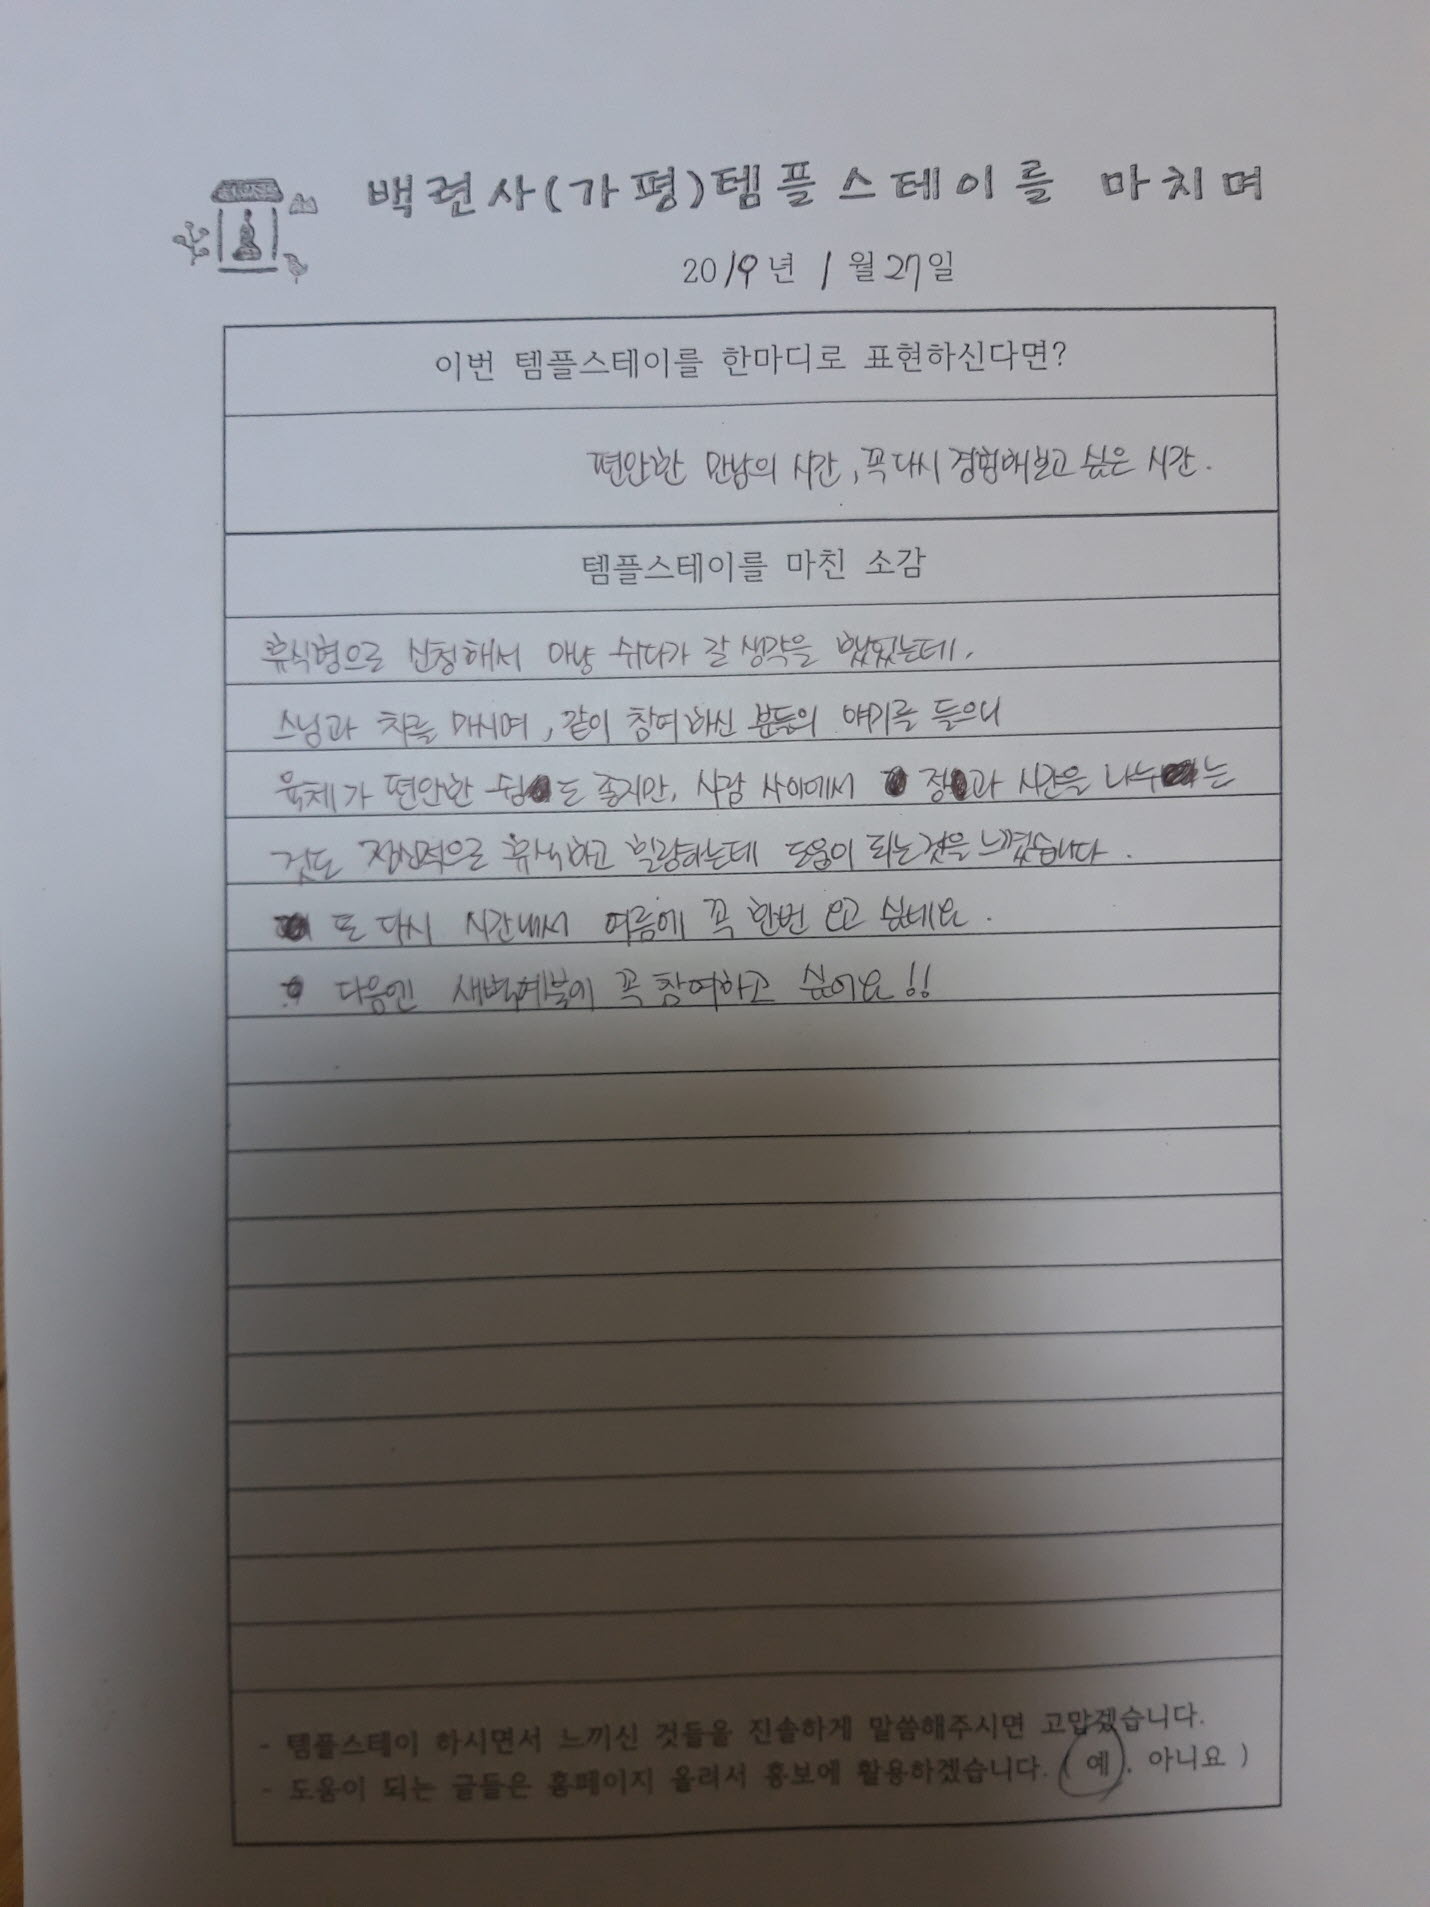 백련사(가평)템플스테이를 마치며
2019년 1월 27일
이번 템플스테이를 한마디로 표현하신다면?
편안한 만남의 시간, 꼭 다시 경험해보고 싶은 시간.
템플스테이를 마친 소감
휴식형으로 신청해서 마냥 쉬다가 갈 생각을 했었는데,
스님과 차를 마시며, 같이 참여하신 분들의 얘기를 들으니
육체가 편안한 쉼도 좋지만, 사람 사이에서 정과 시간을 나누는
것도 정신적으로 휴식하고 힐링하는데 도움이 되는것을 느꼈습니다.
또 다시 시간내서 여름에 꼭 한번 오고 싶네요.
다음엔 새벽예불에 꼭 참여하고 싶어요!!
- 템플스테이 하시면서 느끼신 것들을 진솔하게 말씀해주시면 고맙겠습니다.
- 도움이 되는 글들은 홈페이지 올려서 홍보에 활용하겠습니다. ( 예 , 아니요 )